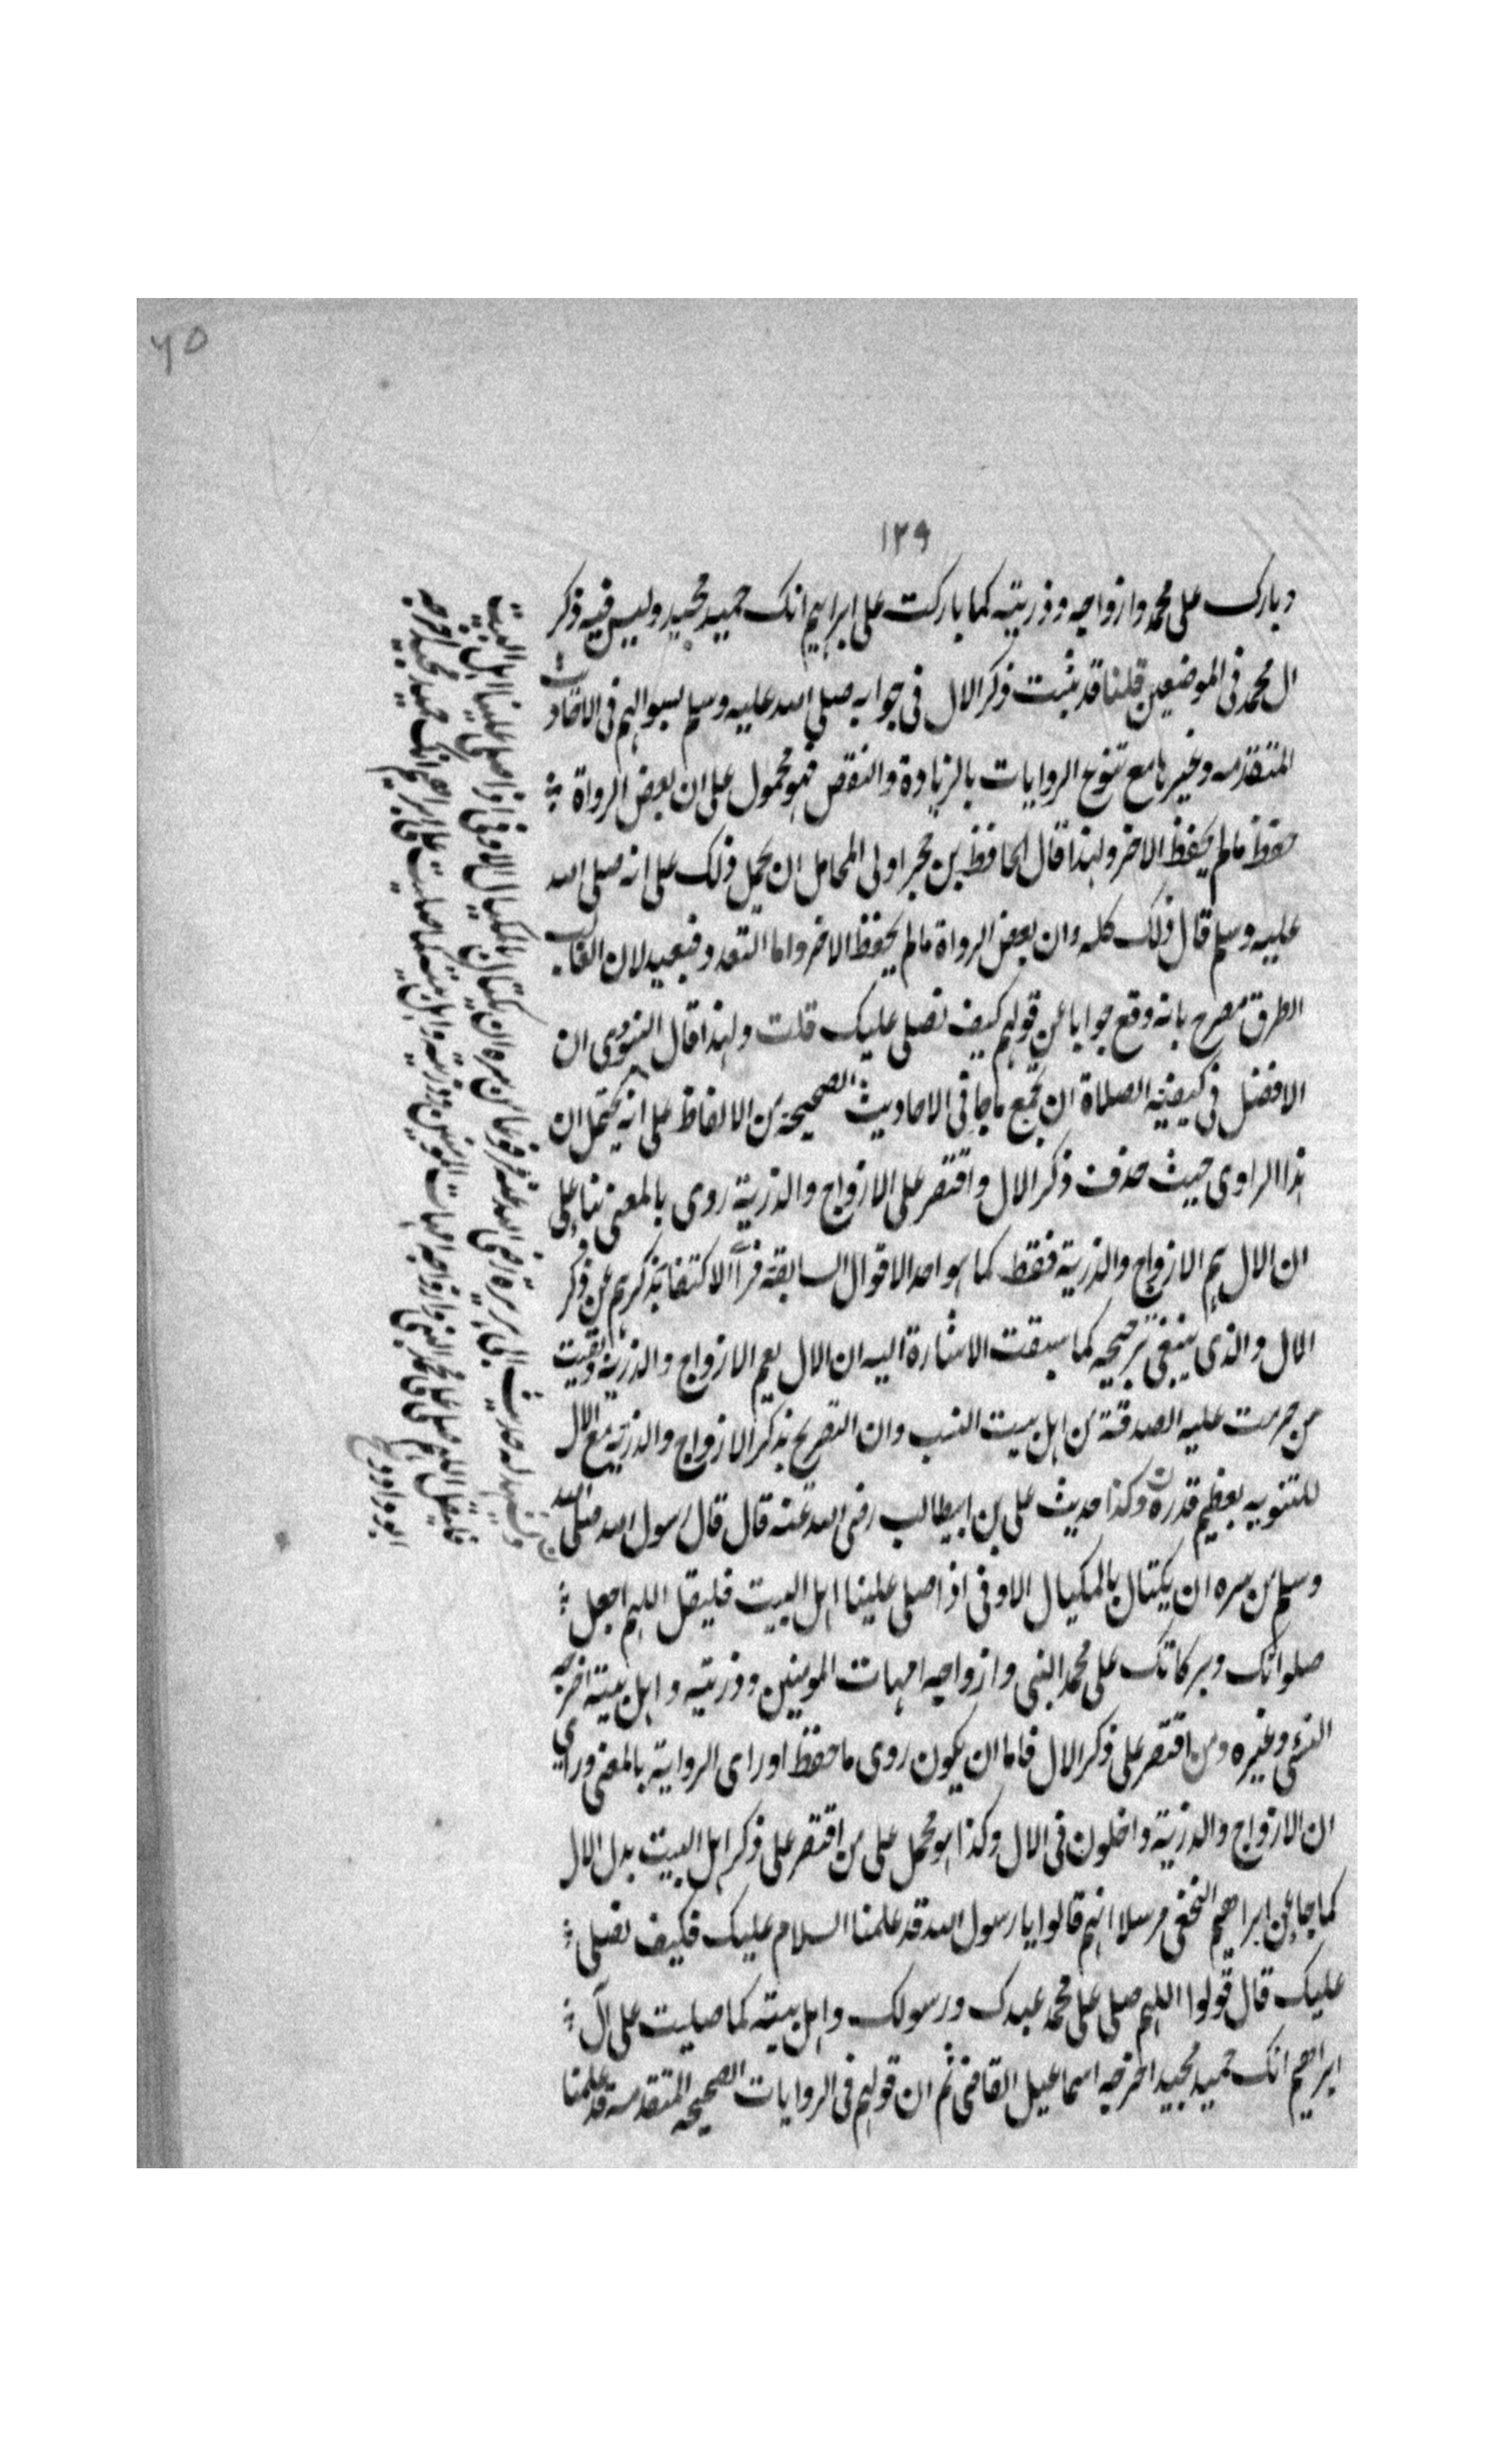 ٦٥
١٢٩
وبارك على محمد وازواجه وذريته كما باركت على ابراهيم انك حميد مجيد وليس فيه ذكر
ال محمد في الموضعين قلنا قد ثبت ذكر الال في جوابه صلى الله عليه وسلم لسوالهم في الاحاديث
المتقدمه وغيرها مع تنوع الروايات بالزيادة والنقص فهو محمول على ان بعض الرواة
حفظ مالم يحفظ الاخر ولهذا قال الحافظ بن حجر اولى المحامل ان يحمل ذلك على انه صلى الله
عليه وسلم قال ذلك كله وان بعض الرواة مالم يحفظ الاخر واما التعدد فبعيد لان الغالب
الطرق مصرح بانه وقع جوابا عن قولهم كيف نصلي عليك قلت ولهذا قال النووي ان
الافضل في كيفية الصلاة ان تجمع ماجا في الاحاديث الصحيحة من الالفاظ على انه يحتمل ان
هذا الراوي حيث حذف ذكر الال واقتصر على الازواج والذرية روى بالمعنى بناء على
ان الال هم الازواج والذرية فقط كما هو احد الاقوال السابقة فرأى الاكتفا بذكرهم عن ذكر
الال والذي ينبغي ترجيحه كما سبقت الاشارة اليه ان الال يعم الازواج والذرية وبقيت
من حرمت عليه الصدقة من اهل بيت النسب وان التصريح بذكر الازواج والذرية مع الال
للتنويه بعظيم قدرهن وكذا حديث علي بن ابيطالب رضي الله عنه قال قال رسول الله صلى الله
وسلم من سره ان يكتال بالمكيال الاوفى اذا صلى علينا اهل البيت فليقل اللهم اجعل
صلواتك وبركاتك على محمد النبي وازواجه امهات المومنين وذريته واهل بيته اخرجه
النسئي وغيره ومن اقتصر على ذكر الال فاما ان يكون روى ما حفظ او راى الرواية بالمعنى وراي
ان الازواج والذرية داخلون في الال وكذا هو محمل على من اقتصر على ذكر اهل البيت بدل الال
كما جا عن ابراهيم النخعي مرسلا انهم قالوا يا رسول الله قد علمنا السلام عليك فكيف نصلي
عليك قال قولوا اللهم صلي على محمد عبدك ورسولك واهل بيته كما صليت على آل
ابراهيم انك حميد مجيد اخرجه اسماعيل القاضي ثم ان قولهم في الروايات الصحيحه المتقدمه قد علمنا
له حديث ابي هريرة رضي الله عنه مرفوعا من سره ان يكتال بالمكيال الاوفى اذا صلى علينا اهل البيت
فليقل اللهم صل على محمد النبي وازواجه امهات المومنين وذريته واهل بيته كما صليت على ابراهيم انك حميد مجيد اخرجه
ابو داود